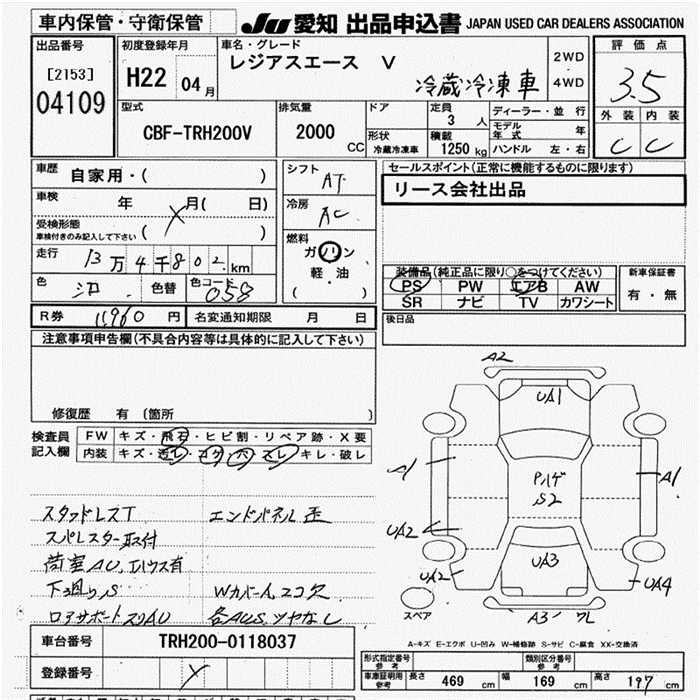 車内保管・守衛保管
JU 愛知 出品申込書 JAPAN USED CAR DEALERS ASSOCIATION
出品番号
[2153]
04109
初度登録年月
H22 04月
車名・グレード
レジアスエース V
冷蔵冷凍車
2WD
4WD
評価点
3.5
外装 内装
C C
型式
CBF-TRH200V
排気量
2000 CC
ドア
形状
冷蔵冷凍車
定員
3 人
積載
1250 kg
ディーラー・並行
モデル年式 年
ハンドル 左・右
車歴
自家用・( )
車検
年 月( 日)
受検形態
車検付きのみ記入して下さい ( )
走行
13万4千802km
色 シロ 色替 色コード 058
シフト
AT
冷房
AC
燃料
ガソリン
軽・油
( )
セールスポイント(正常に機能するものに限ります)
リース会社出品
装備品(純正品に限り○をつけてください)
PS PW エアB AW
SR ナビ TV カワシート
新車保証書
有・無
R券 11,960 円 名変通知期限 月 日
後日品
注意事項申告欄(不具合内容等は具体的に記入して下さい)
修復歴 有 (箇所 )
検査員
記入欄
FW キズ・飛石・ヒビ割・リペア跡・X要
内装 キズ・汚レ・コゲ・穴・スレ・キレ・破レ
スタッドレスT エンドパネル歪
スペレスター取付
荷室AU、
下廻りS Wカバー
各AUS、ツヤなし
A2
UA1
A1
A1
Pハゲ
S2
UA2
UA3
UA2
UA4
スペア
A3 ワレ
A-キズ E-エクボ U-凹み W-補修跡 S-サビ C-腐食 XX-交換済
車台番号 TRH200-0118037
登録番号
形式指定番号
参考
類別区分番号
参考
車庫証明用
参考
長さ 469 cm 幅 169 cm 高さ 197 cm